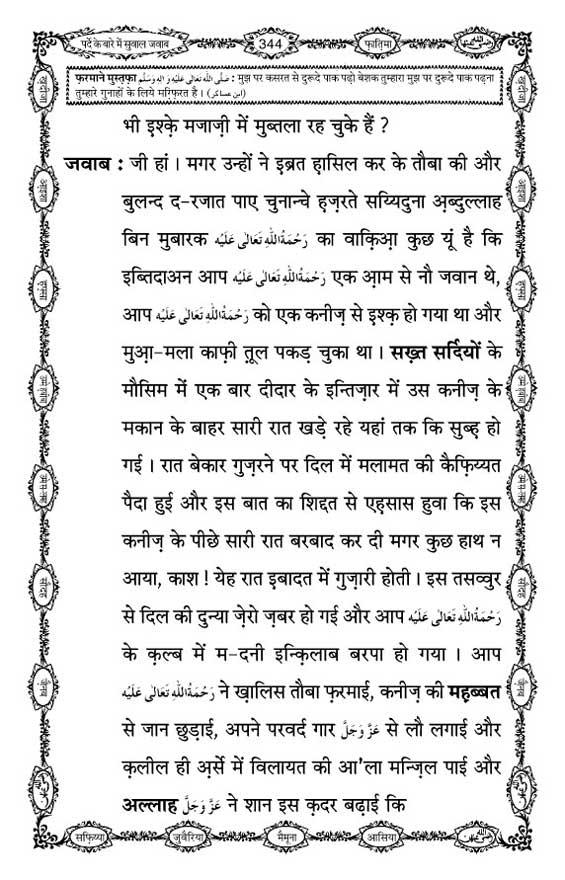 पर्दे के बारे में सुवाल जवाब
344
फ़ातिमा
फ़रमाने मुस्तफ़ा صَلَّى اللهُ تَعَالٰى عَلَيْهِ وَاٰلِهٖ وَسَلَّم : मुझ पर कसरत से दुरूदे पाक पढ़ो बेशक तुम्हारा मुझ पर दुरूदे पाक पढ़ना
तुम्हारे गुनाहों के लिये मग़्फ़िरत है । (ابن عساکر)
भी इश्क़े मजाज़ी में मुब्तला रह चुके हैं ?
जवाब : जी हां । मगर उन्हों ने इ़ब्रत ह़ासिल कर के तौबा की और
बुलन्द द-रजात पाए चुनान्चे ह़ज़रते सय्यिदुना अ़ब्दुल्लाह
बिन मुबारक رَحْمَةُاللهِ تَعَالٰى عَلَيْه का वाक़िआ़ कुछ यूं है कि
इब्तिदाअन आप رَحْمَةُاللهِ تَعَالٰى عَلَيْه एक आ़म से नौ जवान थे,
आप رَحْمَةُاللهِ تَعَالٰى عَلَيْه को एक कनीज़ से इश्क़ हो गया था और
मुआ़-मला काफ़ी त़ूल पकड़ चुका था । सख़्त सर्दियों के
मौसिम में एक बार दीदार के इन्तिज़ार में उस कनीज़ के
मकान के बाहर सारी रात खड़े रहे यहां तक कि सुब्ह़ हो
गई । रात बेकार गुज़रने पर दिल में मलामत की कैफ़िय्यत
पैदा हुई और इस बात का शिद्दत से एह़सास हुवा कि इस
कनीज़ के पीछे सारी रात बरबाद कर दी मगर कुछ हाथ न
आया, काश ! येह रात इबादत में गुज़ारी होती । इस तसव्वुर
से दिल की दुन्या ज़ेरो ज़बर हो गई और आप رَحْمَةُاللهِ تَعَالٰى عَلَيْه
के क़ल्ब में म-दनी इन्क़िलाब बरपा हो गया । आप
رَحْمَةُاللهِ تَعَالٰى عَلَيْه ने ख़ालिस तौबा फ़रमाई, कनीज़ की मह़ब्बत
से जान छुड़ाई, अपने परवर्द गार عَزَّوَجَلَّ से लौ लगाई और
क़लील ही अ़र्से में विलायत की आ'ला मन्ज़िल पाई और
अल्लाह عَزَّوَجَلَّ ने शान इस क़दर बढ़ाई कि
सफ़िय्या
जुवैरिया
मैमूना
आसिया